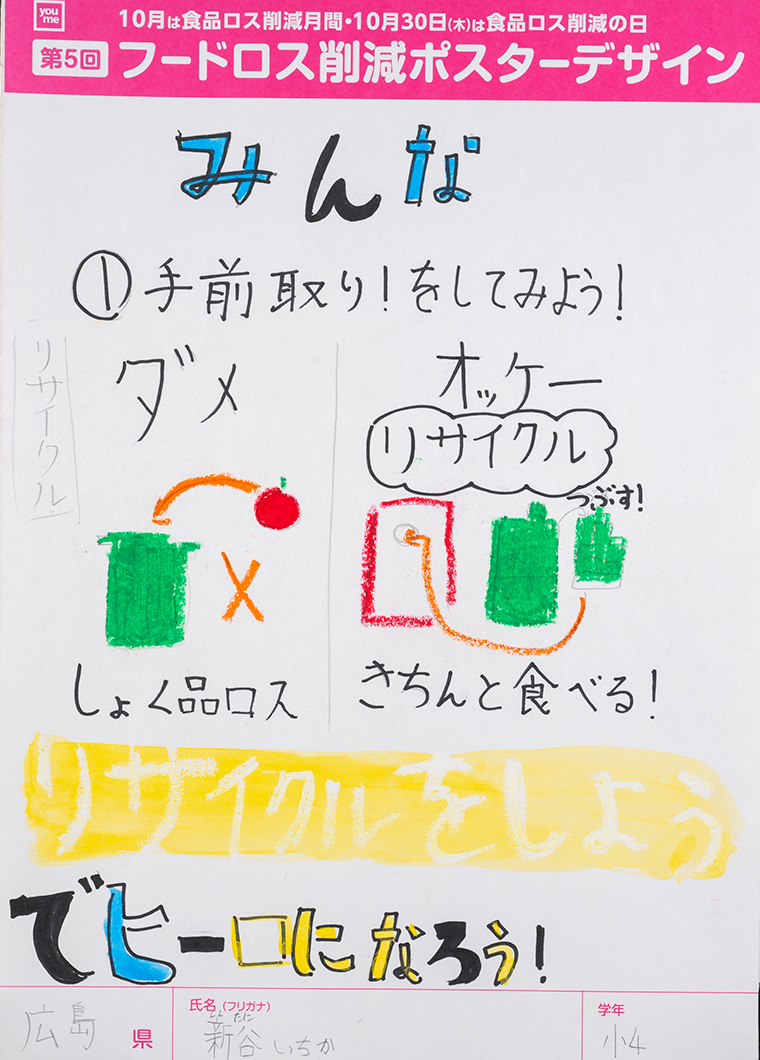 you me
10月は食品ロス削減月間・10月30日(木)は食品ロス削減の日
第5回 フードロス削減ポスターデザイン
みんな
①手前取り!をしてみよう!
リサイクル
ダメ
オッケー
リサイクル
つぶす!
しょく品ロス
きちんと食べる!
リサイクルをしよう
でヒーロになろう!
広島 県
氏名(フリガナ)
新谷 いちか
学年
小4